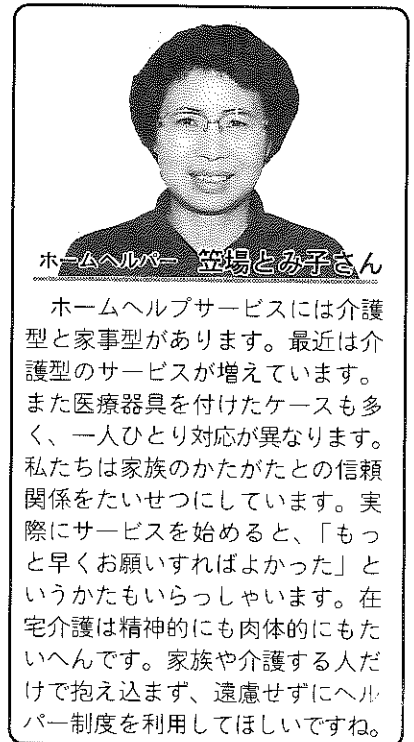 ホームヘルパー 笠場とみ子さん
　ホームヘルプサービスには介護
型と家事型があります。最近は介
護型のサービスが増えています。
また医療器具を付けたケースも多
く、一人ひとり対応が異なります。
私たちは家族のかたがたとの信頼
関係をたいせつにしています。実
際にサービスを始めると、「もっ
と早くお願いすればよかった」と
いうかたもいらっしゃいます。在
宅介護は精神的にも肉体的にもた
いへんです。家族や介護する人だ
けで抱え込まず、遠慮せずにヘル
パー制度を利用してほしいですね。